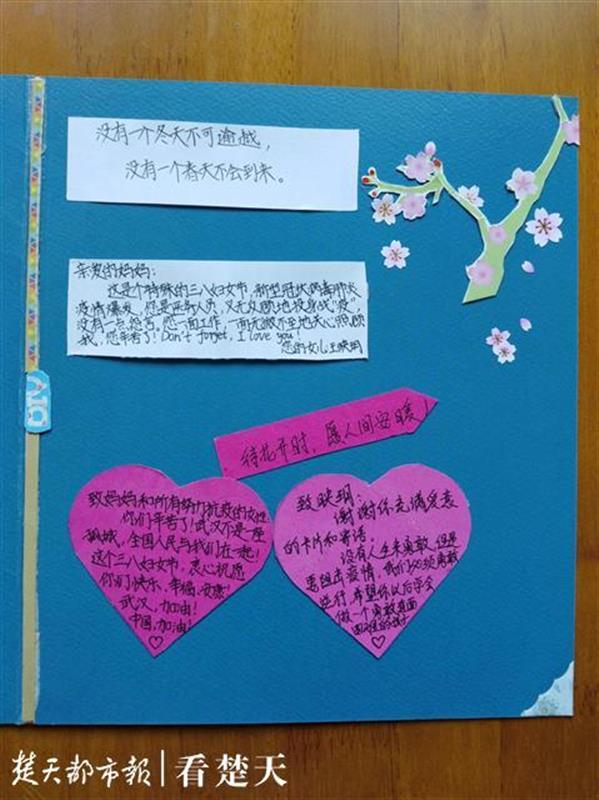 没有一个冬天不可逾越，
没有一个春天不会到来。
亲爱的妈妈：
这是个特殊的三八妇女节，新型冠状病毒肺炎
疫情爆发，您是医务人员，义无反顾地投身战"疫"，
没有一点怨言。您一面工作，一面无微不至地关心照顾
我，您辛苦了！Don't forget, I love you！
您的女儿王映玥
待花开时，愿人间安暖！
致妈妈和所有努力抗疫的女性：
你们辛苦了！武汉不是一座
孤城，全国人民与我们在一起！
这个三八妇女节，衷心祝愿
你们快乐，幸福，安康！
武汉，加油！
中国，加油！
致映玥：
谢谢你充满爱意
的卡片和寄语。
没有人生来勇敢，但是
要阻击疫情，我们必须勇敢
逆行，希望你以后学会
做一个勇敢直面
困难的孩子
楚天都市报|看楚天